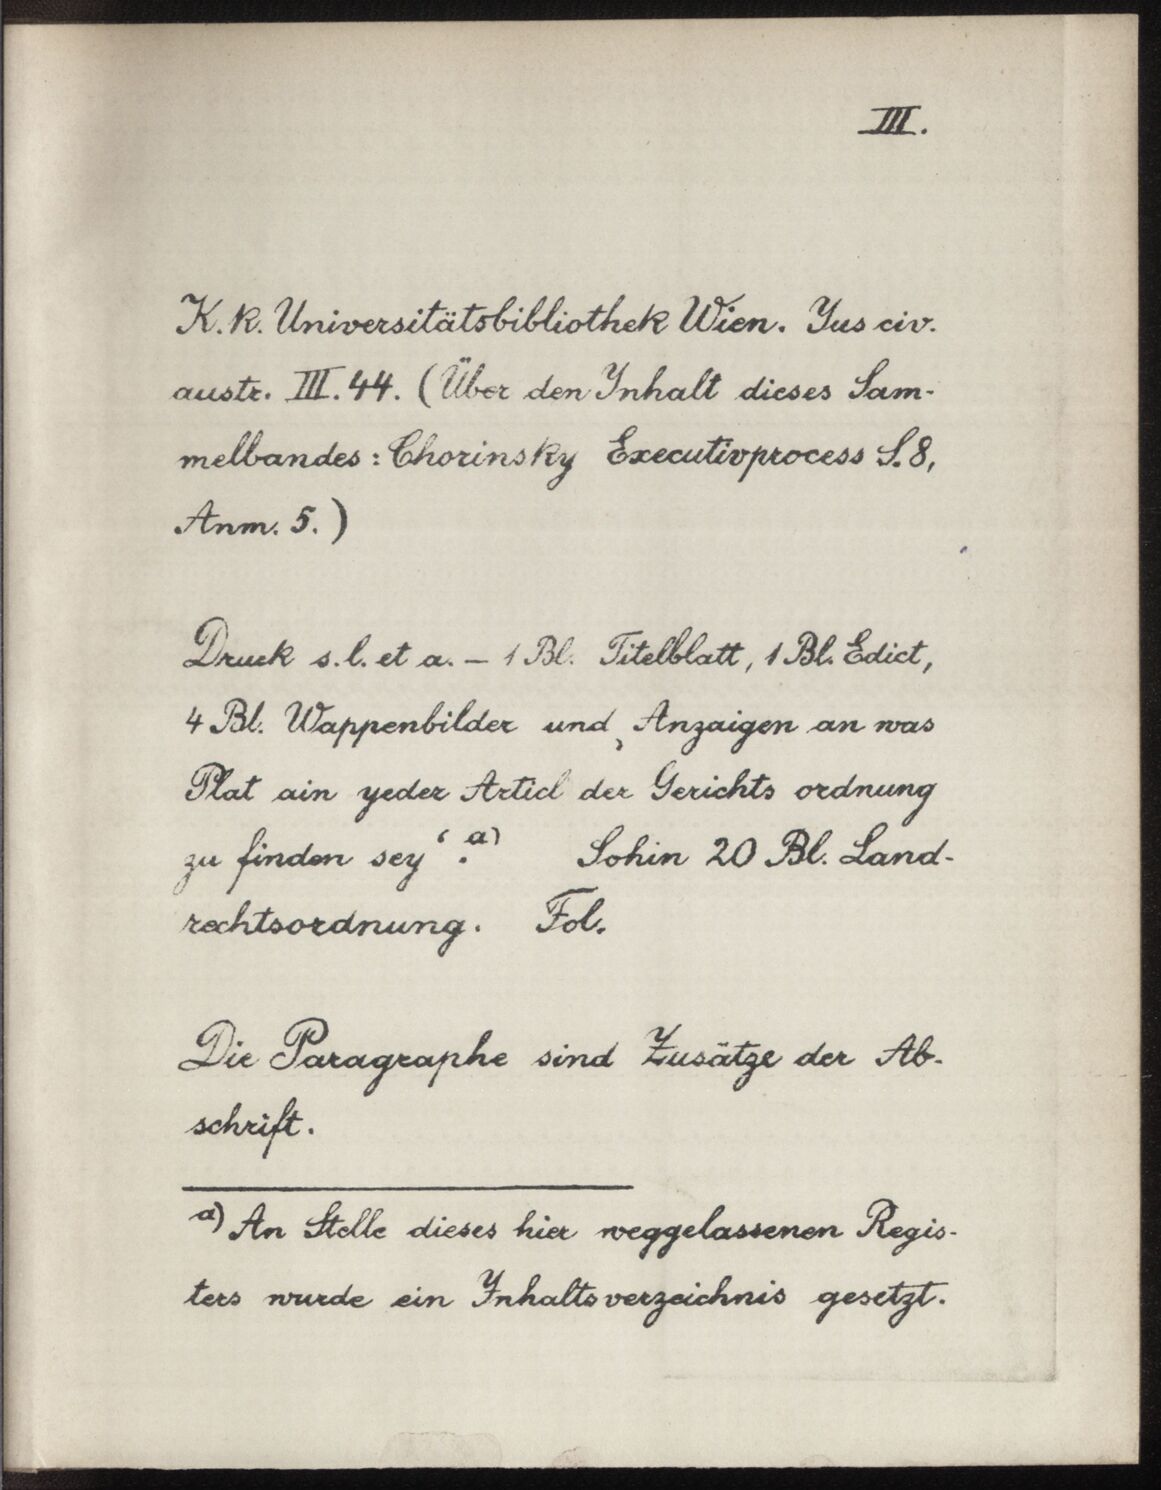 III.
K. k. Universitätsbibliothek Wien. Jus civ.
austr. III. 44. (Über den Inhalt dieses Sam-
melbandes: Chorinsky Executivprocess S. 8,
Anm. 5.)
Druck s. l. et a. – 1 Bl. Titelblatt, 1 Bl. Edict,
4 Bl. Wappenbilder und ‚Anzaigen an was
Plat ain yeder Articl der Gerichts ordnung
zu finden sey‘. a) Sohin 20 Bl. Land-
rechtsordnung. Fol.
Die Paragraphe sind Zusätze der Ab-
schrift.
a) An Stelle dieses hier weggelassenen Regis-
ters wurde ein Inhaltsverzeichnis gesetzt.